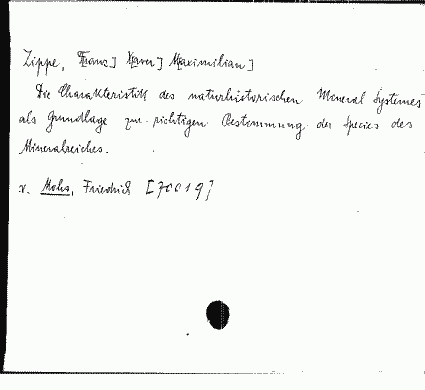 Zippe, Franz] Xaver] Maximilian]
Die Charakteristik des naturhistorischen Mineral Systemes
als Grundlage zur richtigen Bestimmung der Species des
Mineralreiches.
v. Mohs, Friedrich [70019]